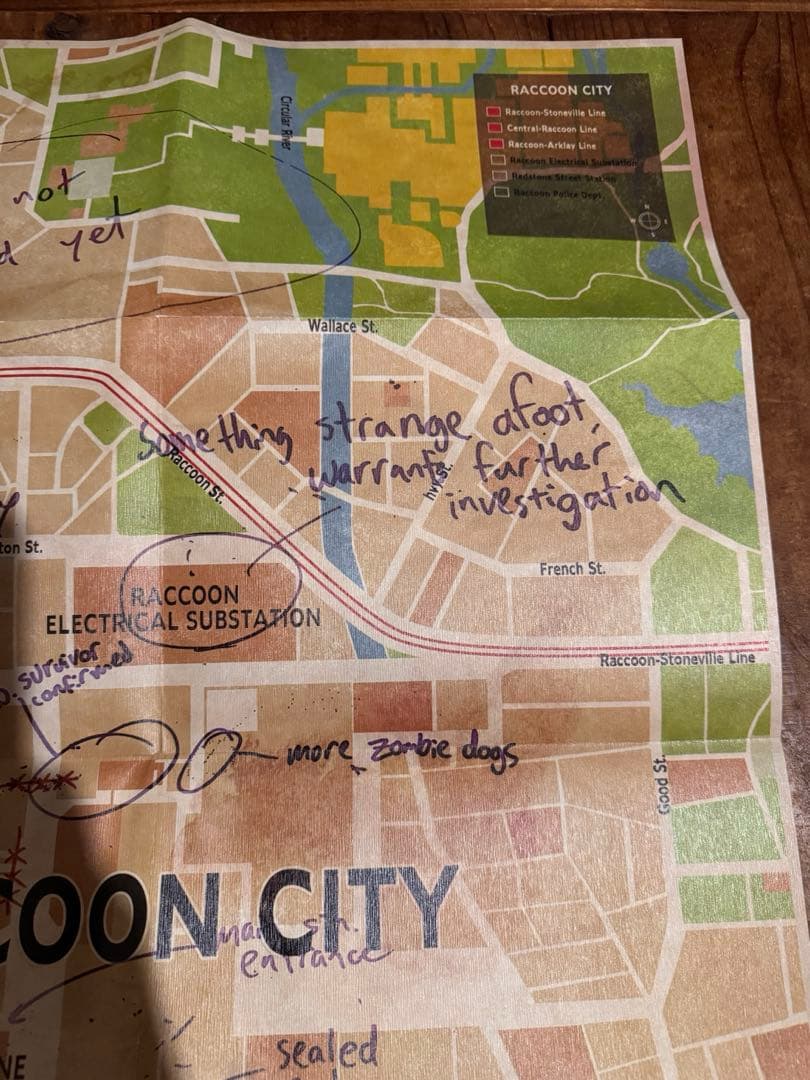 RACCOON CITY
Raccoon-Stoneville Line
Central-Raccoon Line
Raccoon-Arklay Line
Raccoon Electrical Substation
Redstone Street Station
Raccoon Police Dept.
N
W
E
S
Circular River
not
yet
Wallace St.
Something strange afoot,
warrants further
investigation
Raccoon St.
hwy St.
ton St.
French St.
RACCOON
ELECTRICAL SUBSTATION
Raccoon-Stoneville Line
survivor
confirmed
more zombie dogs
Good St.
COON CITY
entrance
sealed
NE